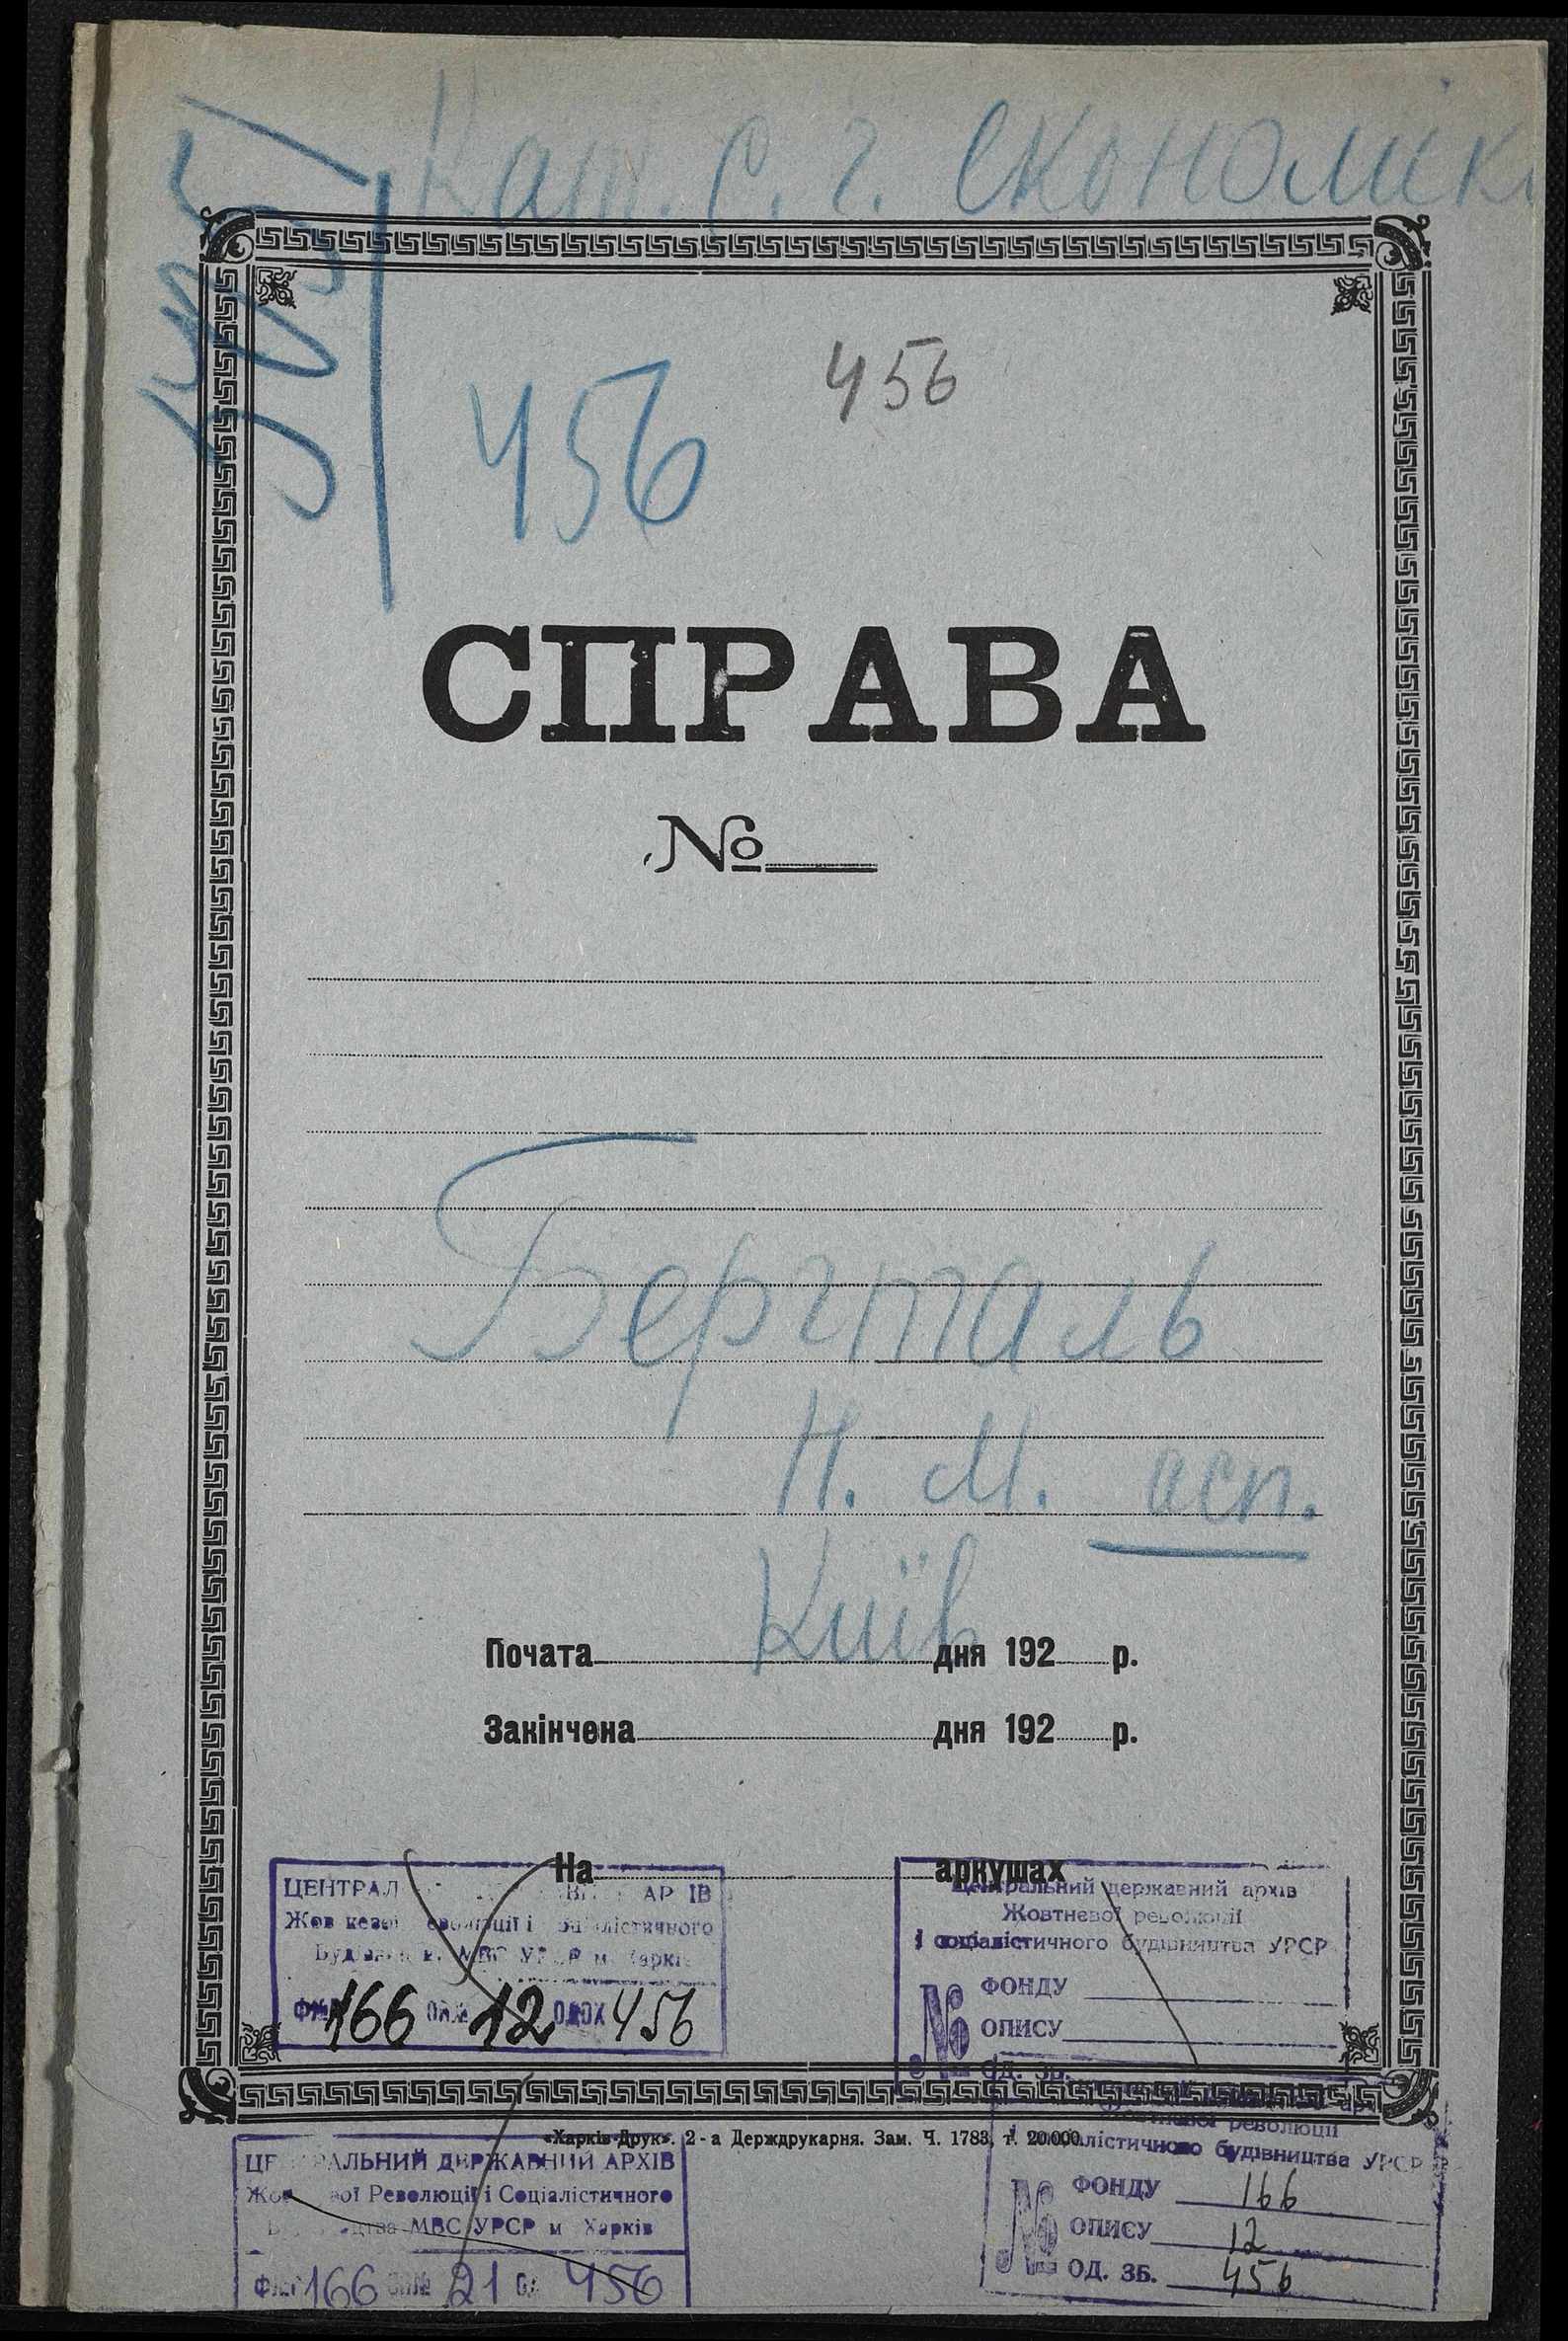 Кат. с. г. економіки
456
456
СПРАВА
№
Бергталь
Н. М. асп.
Київ
Почата дня 192 р.
Закінчена дня 192 р.
На аркушах
ЦЕНТРАЛ АРХІВ
Жов еволюції і Соціалістичного
Будівництва МВС УРСР м. Харків
ФК№ 166 ОП№ 12 ОДЗХ 456
Центральний державний архів
Жовтневої революції
і соціалістичного будівництва УРСР
№
ФОНДУ
ОПИСУ
ОД. ЗБ.
«Харків-Друк». 2-а Держдрукарня. Зам. Ч. 1783, т. 20.000.
ЦЕНТРАЛЬНИЙ ДЕРЖАВНИЙ АРХІВ
Жовтневої Революції і Соціалістичного
Будівництва МВС УРСР м Харків
166 21 456
Жовтневої революції
і соціалістичного будівництва УРСР
№
ФОНДУ 166
ОПИСУ 12
ОД. ЗБ. 456